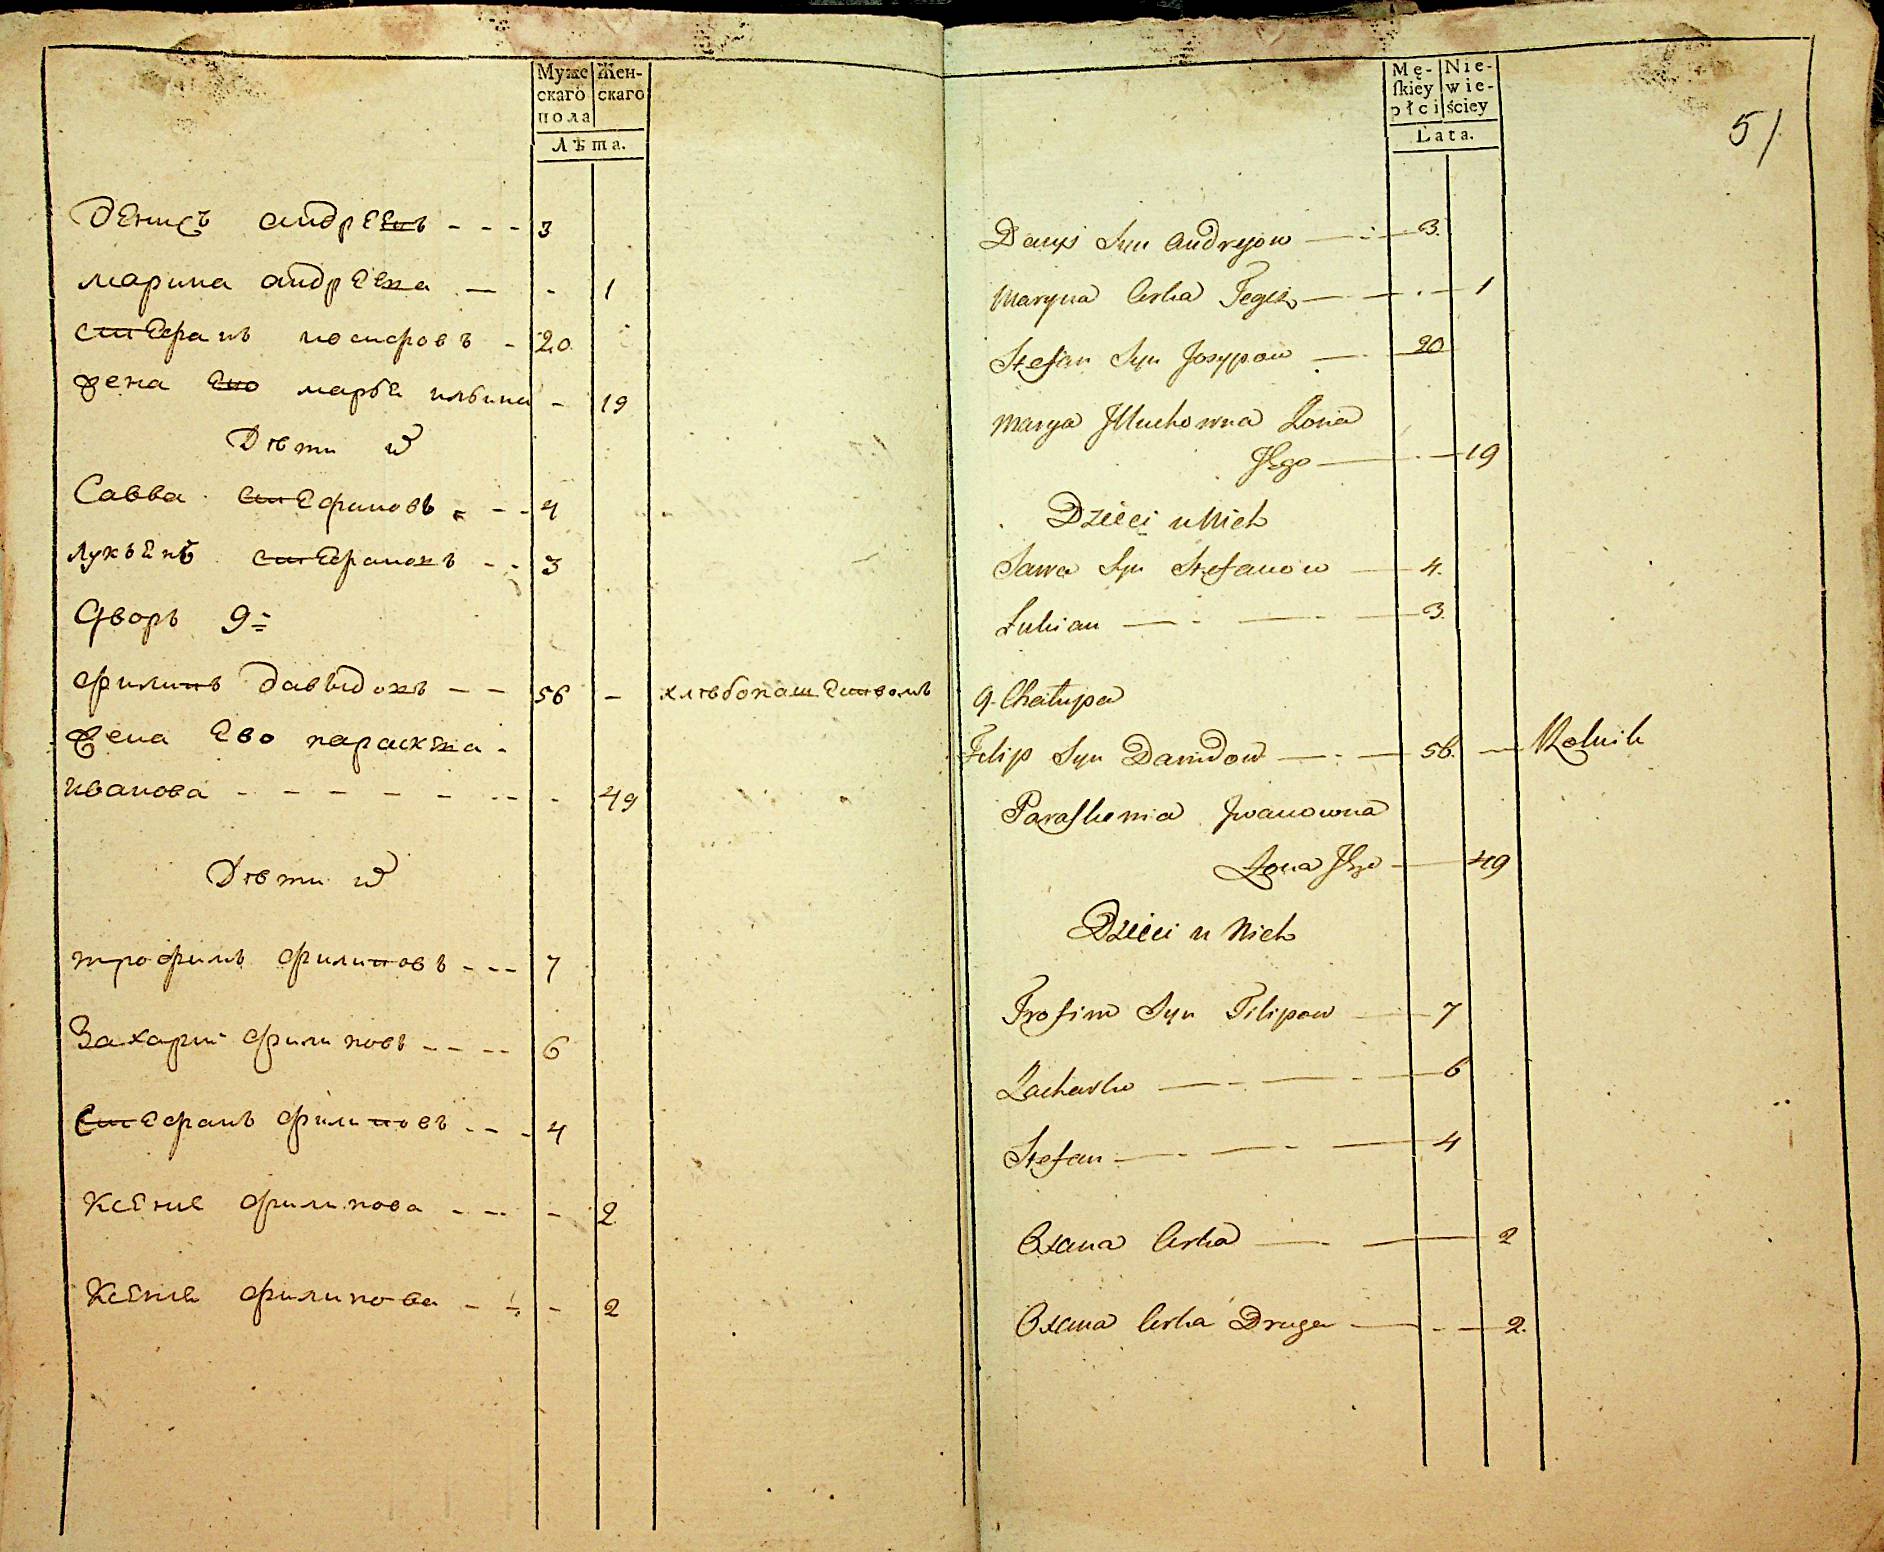 Муже
скаго
пола
Жен-
скаго
Лѣта.
Денисъ андреевъ - - - 3
марина андреева - - 1
стефанъ иосифовъ - 20
жена ево марья ильина - 19
Дѣти
Савва стефановъ - - 4
лукьянъ стефановъ - - 3
Дворъ 9=
филипъ давыдовъ - - 56 - хлѣбопашествомъ
жена ево параскева -
иванова - - - - - - - 49
Дѣти
трофимъ филиповъ - - - 7
Захарий филиповъ - - - - 6
Стефанъ филиповъ - - - 4
Ксение филипова - - - - 2
Ксение филипова - - - 2
Mę-
ſkiey
płci
Nie-
wie-
ściey
Lata.
51
Danys Syn Andrejow — 3.
Maryna Corka Tegoż — 1
Stefan Syn Josypow — 20
Marya Illuchowna Zona
Jego — 19
Dzieci u Nich
Sawa Syn Stefanow — 4.
Lukian — 3.
9. Chałupa
Filip Syn Dawidow — 56. — Rolnik
Paraſkewia Jwanowna
Zona Jego — 49
Dzieci u Nich
Trofim Syn Filipow — 7
Zacharko — 6
Stefan — 4
Oxana Corka — 2
Oxana Corka Druga — 2.